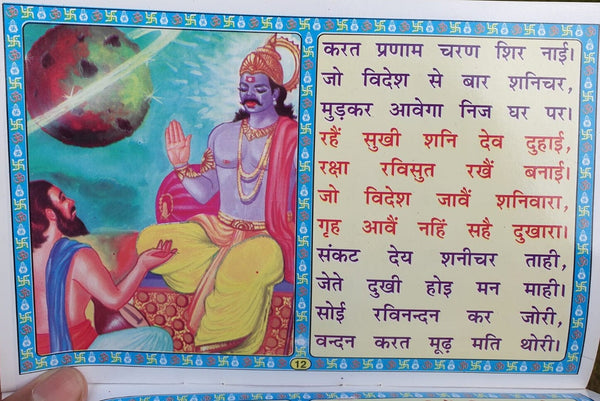 करत प्रणाम चरण शिर नाई।
जो विदेश से बार शनिचर,
मुड़कर आवेगा निज घर पर।
रहैं सुखी शनि देव दुहाई,
रक्षा रविसुत रखैं बनाई।
जो विदेश जावैं शनिवारा,
गृह आवैं नहिं सहै दुखारा।
संकट देय शनीचर ताही,
जेते दुखी होइ मन माही।
सोई रविनन्दन कर जोरी,
वन्दन करत मूढ़ मति थोरी।
12